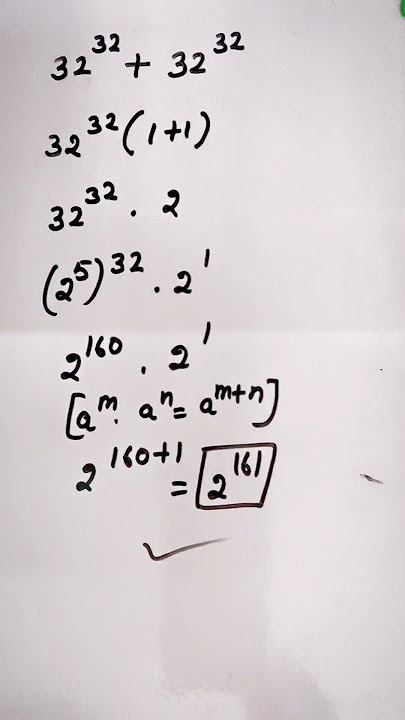 32^32 + 32^32
32^32 (1+1)
32^32 . 2
(2^5)^32 . 2^1
2^160 . 2^1
[a^m . a^n = a^m+n]
2^160+1 = 2^161